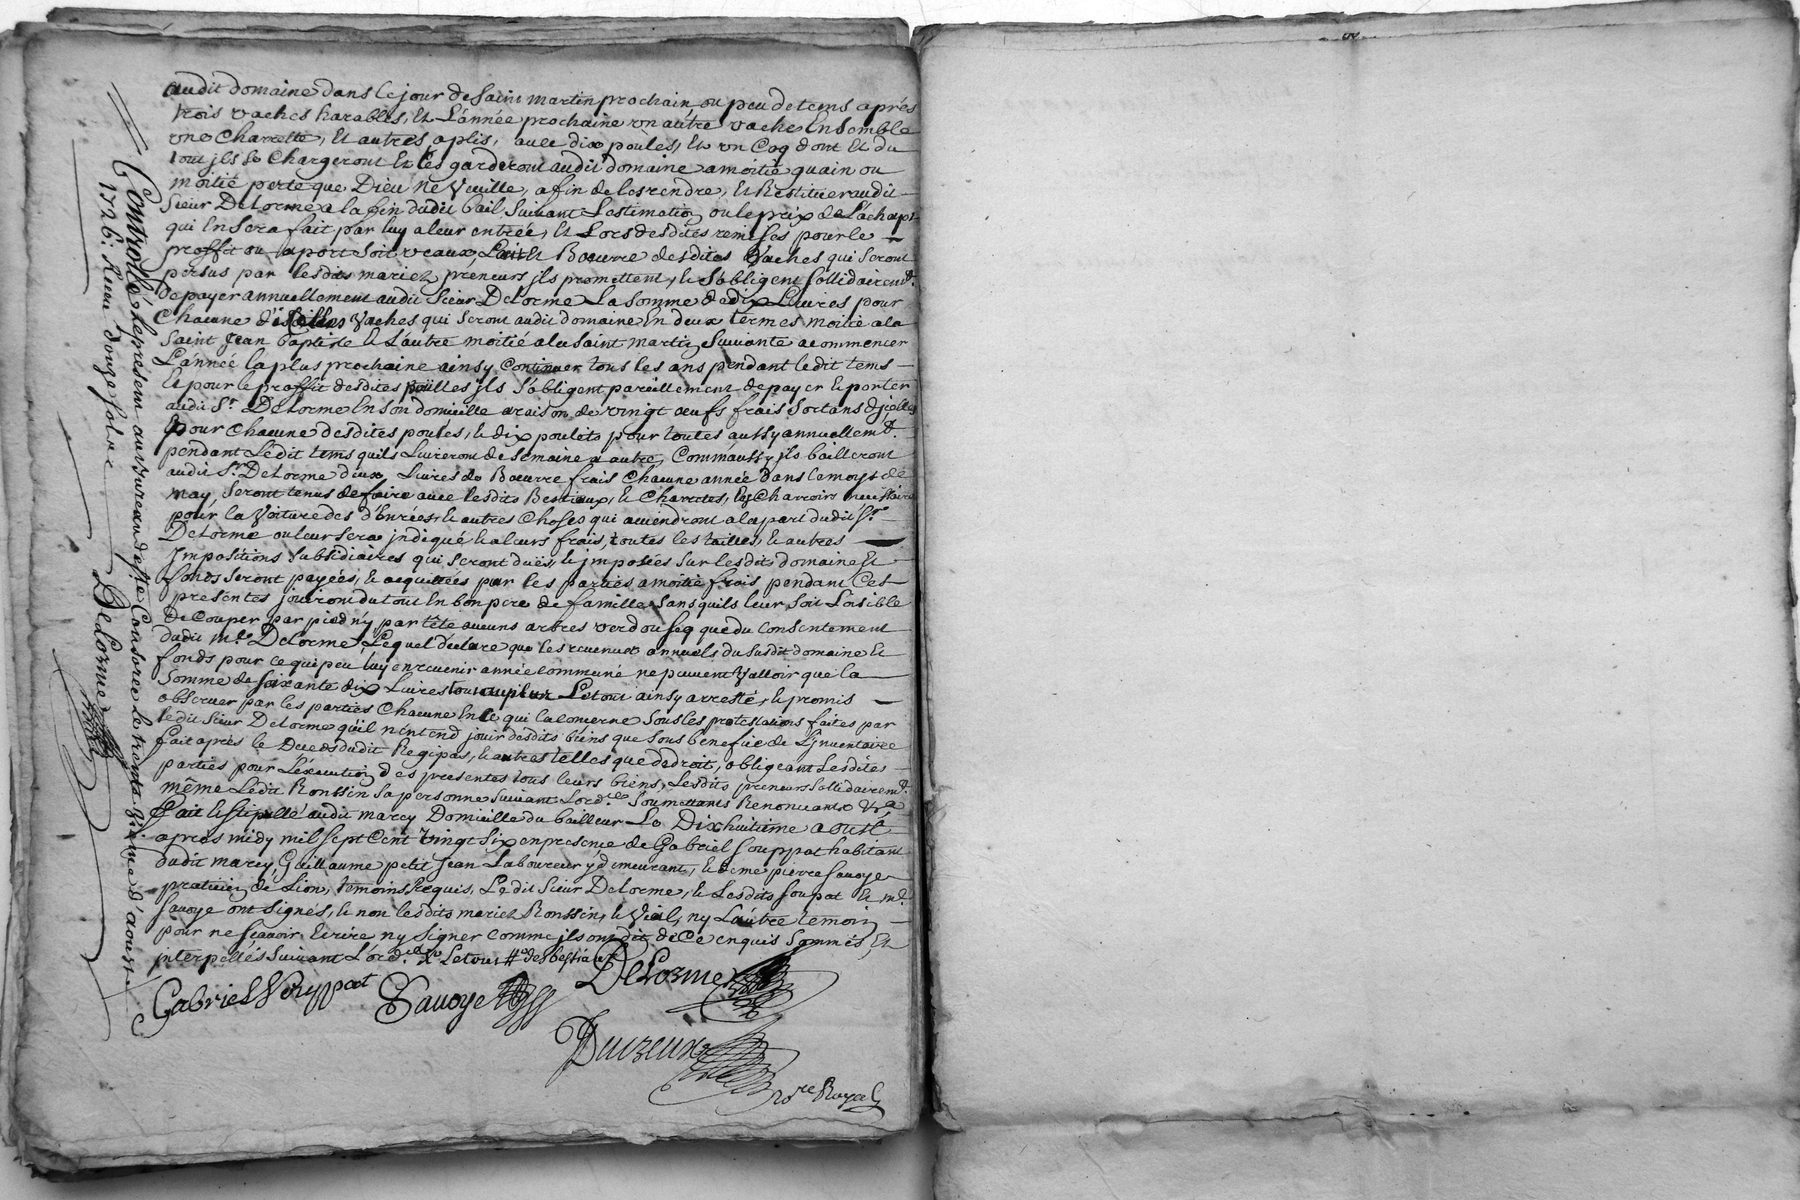 audit domaine dans le jour de saint martin prochain ou peu detems aprés
trois vaches harables, Et L'année prochaine un autre vache Ensemble
une Charrette, Et autres aplis, avec dix poules, Et un Coq dont Et du
tout jls se Chargeront Et les garderont audit domaine a moitié quain ou
moitié perte que Dieu ne Veuille, afin de les rendre, Et Restituer audit
Sieur DeLorme a la fin dudit bail Suivant Lestimation ou le prix de Lachapt
qui En Sera fait par luy a leur entrée, Et Lors desdites remises pour le
proffit ou aport soit veaux, Lait Et Bœurre desdites Vaches qui Seront
persus par lesdits mariez preneurs jls promettent, et S'obligent Sollidairemt.
de payer annuellement audit Sieur DeLorme La Somme de dix Livres pour
Chacune d'jcelles Vaches qui Seront audit domaine En deux termes moitié a la
Saint Jean baptiste Et L'autre moitié a la Saint martin Suivante a commencer
L'année la plus prochaine ainsy Continuer tous les ans pendant ledit tems
Et pour le proffit desdites poulles jls S'obligent pareillement de payer Et porter
audit Sr. DeLorme En Son domicille a raison de vingt œufs frais Sortans d'jcelles
pour Chacune desdites poules, Et dix poulets pour toutes aussy annuellemt.
pendant Ledit tems quils Livreront de Semaine a autre, Comm'aussy jls bailleront
audit Sr. DeLorme deux Livres de Bœurre frais Chacune année dans le moys de
may, Seront tenus de faire avec lesdits Bestiaux, Et Charretes, les Charroirs necessaires
pour la Voiture des d'Enrées, Et autres Choses qui aviendront a la part dudit Sr.
DeLorme ou leur Sera jndiqué Et a leurs frais, toutes les tailles, Et autres
Jmpositions Subsidiaires qui Seront duës, Et jmposées Sur lesdits domaine Et
fonds Seront payées, Et acquittées par les parties a moitié frais pendant Ces
presentes jouiront du tout En bon pere de famille Sans quils leur Soit Loisible
de Couper par pied ny par tête aucuns arbres verd ou Seq que du Consentement
dudit Mr. DeLorme Lequel declare que les revenus annuels du Susdit domaine Et
fonds pour ce qui peu luy en revenir année commune ne peuvent Valloir que la
Somme de Soixante dix Livres tout au plus Le tout ainsy arresté, Et promis
observer par les parties Chacune En ce qui la concerne Sous les protestations faites par
ledit Sieur DeLorme quil n'entend jouir desdits biens que Sous benefice de L'jnventaire
fait aprés le Deceds dudit Regipas, Et autres telles que de droit, obligeant Lesdites
parties pour L'éxecution des presentes tous leurs biens, Lesdits preneurs Sollidairemt.
même Ledit Ronssin Sa personne Suivant Lordce Soumettants Renonceants Vra
Fait Et Stipullé audit marcy Domicille du bailleur Le Dixhuitième aoust
aprés midy mil Sept Cent Vingt Six en presence de Gabriel Souppat habitant
dudit marcy, Guillaume petit Jean Laboureur y demeurant, Et de me pierre Savoye
praticien de Lion, temoins Requis, Ledit Sieur DeLorme, Et Lesdits Soupat Et me.
Savoye ont Signés, Et non lesdits mariez Ronssin, Et Vial, ny L'autre temoin
pour ne Scavoir Ecrire ny Signer comme jls ont dit de Ce enquis Sommés, Et
jnterpellés Suivant L'ordce. Letout # desbestiaux
Gabriel Souppat Savoye DeLorme
Duvreux
Nore Royal
Controllé le présent au bureau de Ste. Consorce le trenta vieme d'aoust
1726. Receu douze sols
DeLorme